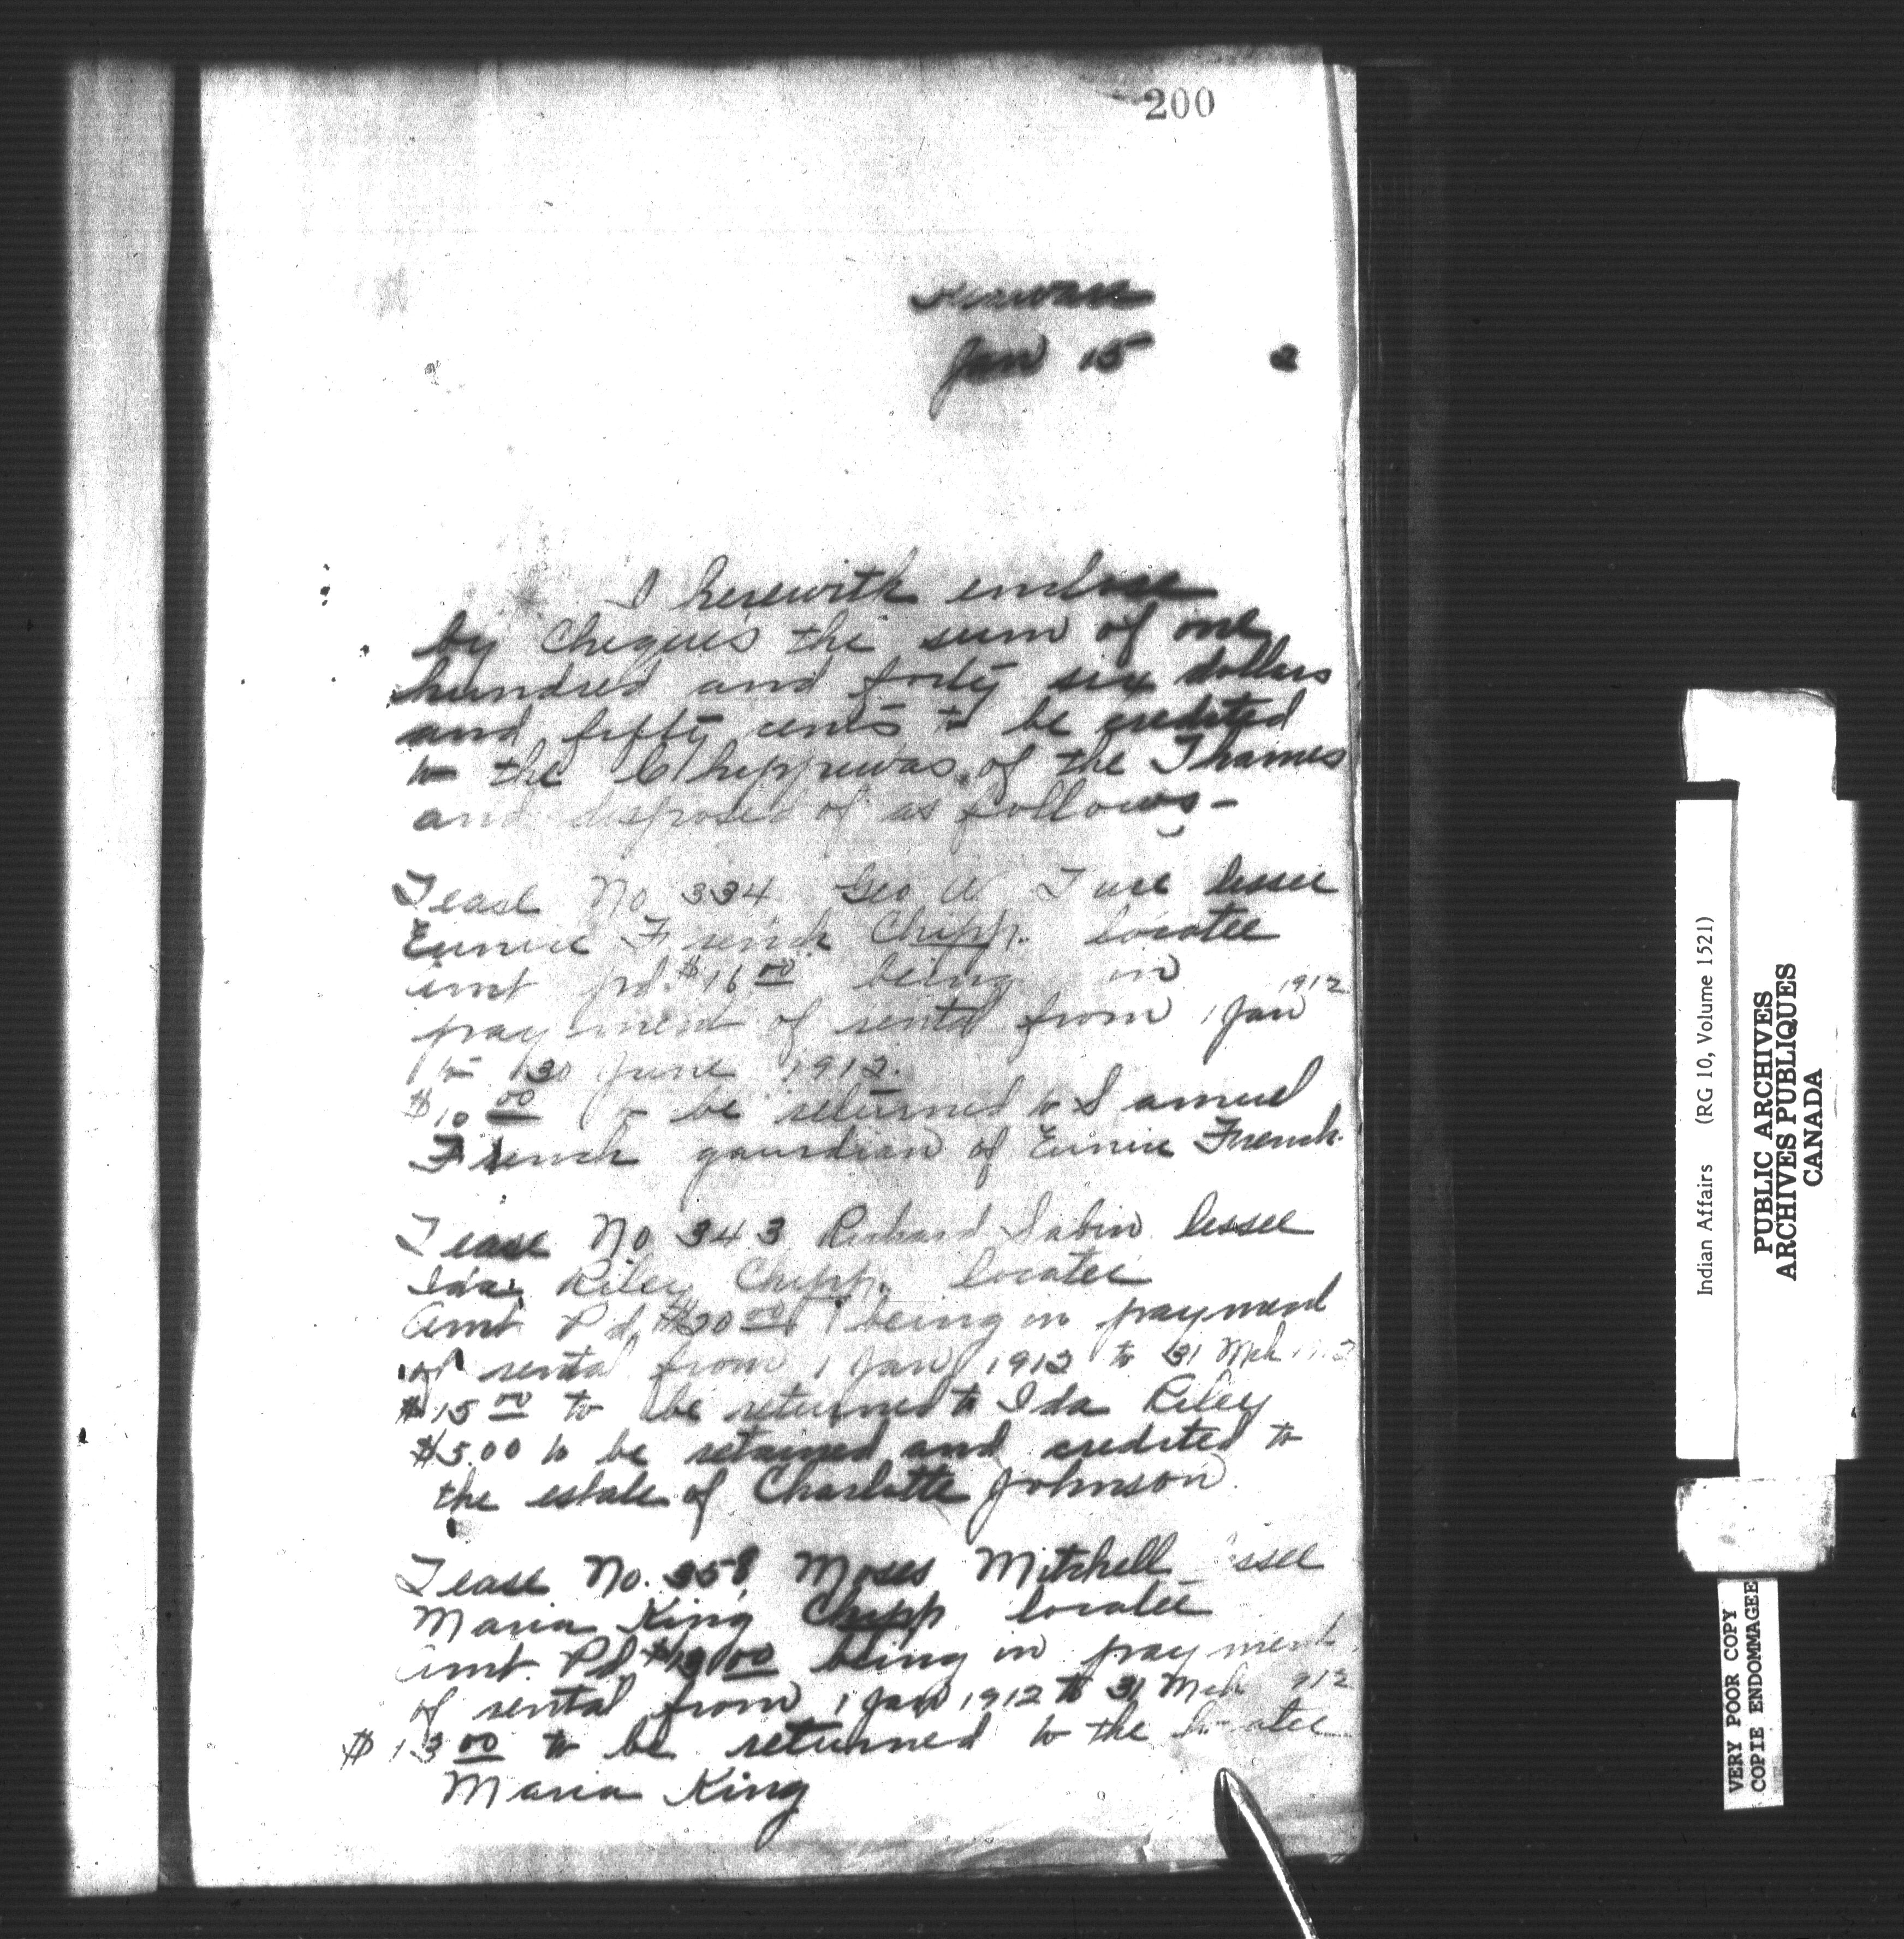 200
Jan 15 2
I herewith enclose
by Cheques the sum of one
hundred and forty six dollars
and fifty cents to be credited
to the Chippewas of the Thames
and disposed of as follows -
Lease No 334 Geo W lessee
Eunice French Chipp. locatee
amt pd. $16 00 being in
payment of rental from 1 Jan 1912
to 30 June 1912.
$10 00 to be returned to Samuel
French gaurdian of Eunice French.
Lease No 343 Richard Sabin lessee
Ida Riley Chipp. locatee
Amt Pd. $20 00 being in payment
of rental from 1 Jan 1912 to 31 Mch
$15 00 to be returned to Ida Riley
$5.00 to be retained and credited to
the estate of Charlotte Johnson
Lease No. 358 Moses Mitchell lessee
Maria King Chipp locatee
amt. Pd. being in payment
of rental from 1 Jan 1912 to 31 Mch 912
$13 00 to be returned to the locatee
Maria King
Indian Affairs (RG 10, Volume 1521)
PUBLIC ARCHIVES
ARCHIVES PUBLIQUES
CANADA
VERY POOR COPY
COPIE ENDOMMAGEE